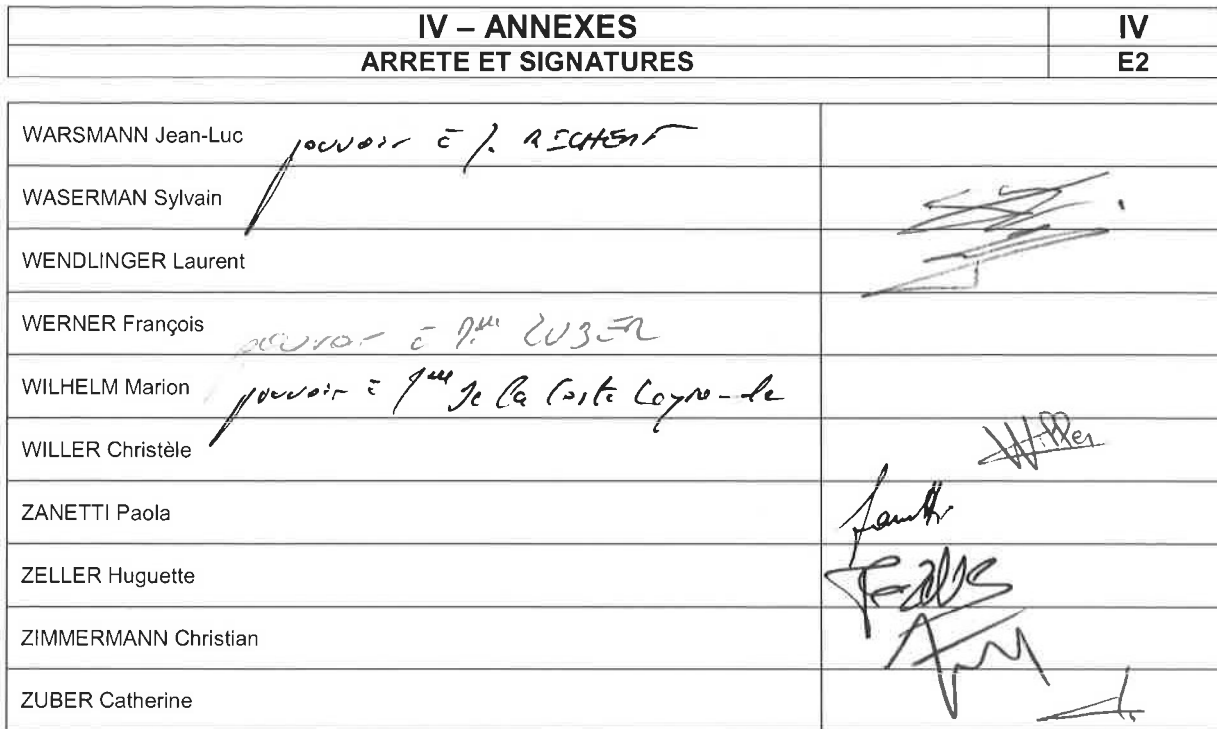 IV – ANNEXES IV
ARRETE ET SIGNATURES E2
WARSMANN Jean-Luc pouvoir à
WASERMAN Sylvain
WENDLINGER Laurent
WERNER François pouvoir à Mme ZUBER
WILHELM Marion pouvoir à Mme de la
WILLER Christèle Willer
ZANETTI Paola
ZELLER Huguette
ZIMMERMANN Christian
ZUBER Catherine